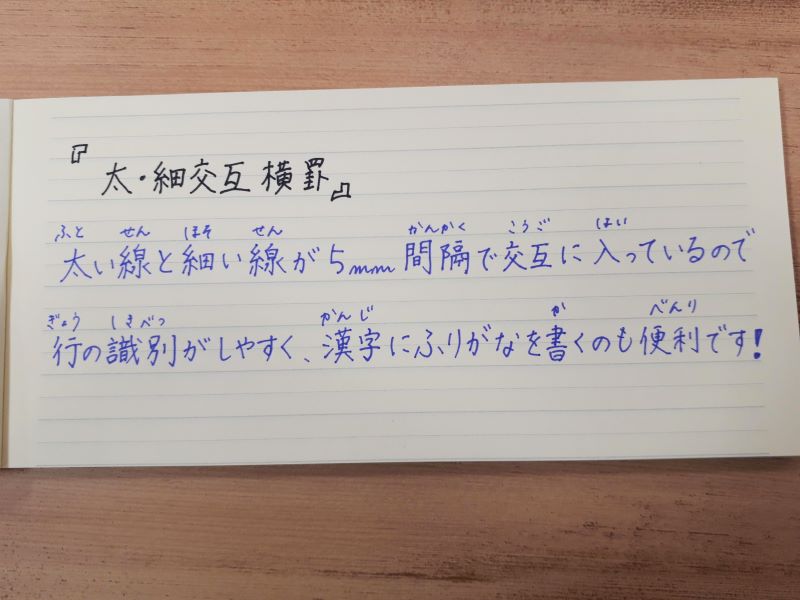 『太・細交互横罫』
ふと せん ほそ せん かんかく こうご はい
太い線と細い線が5mm間隔で交互に入っているので
ぎょう しきべつ かんじ か べんり
行の識別がしやすく、漢字にふりがなを書くのも便利です!